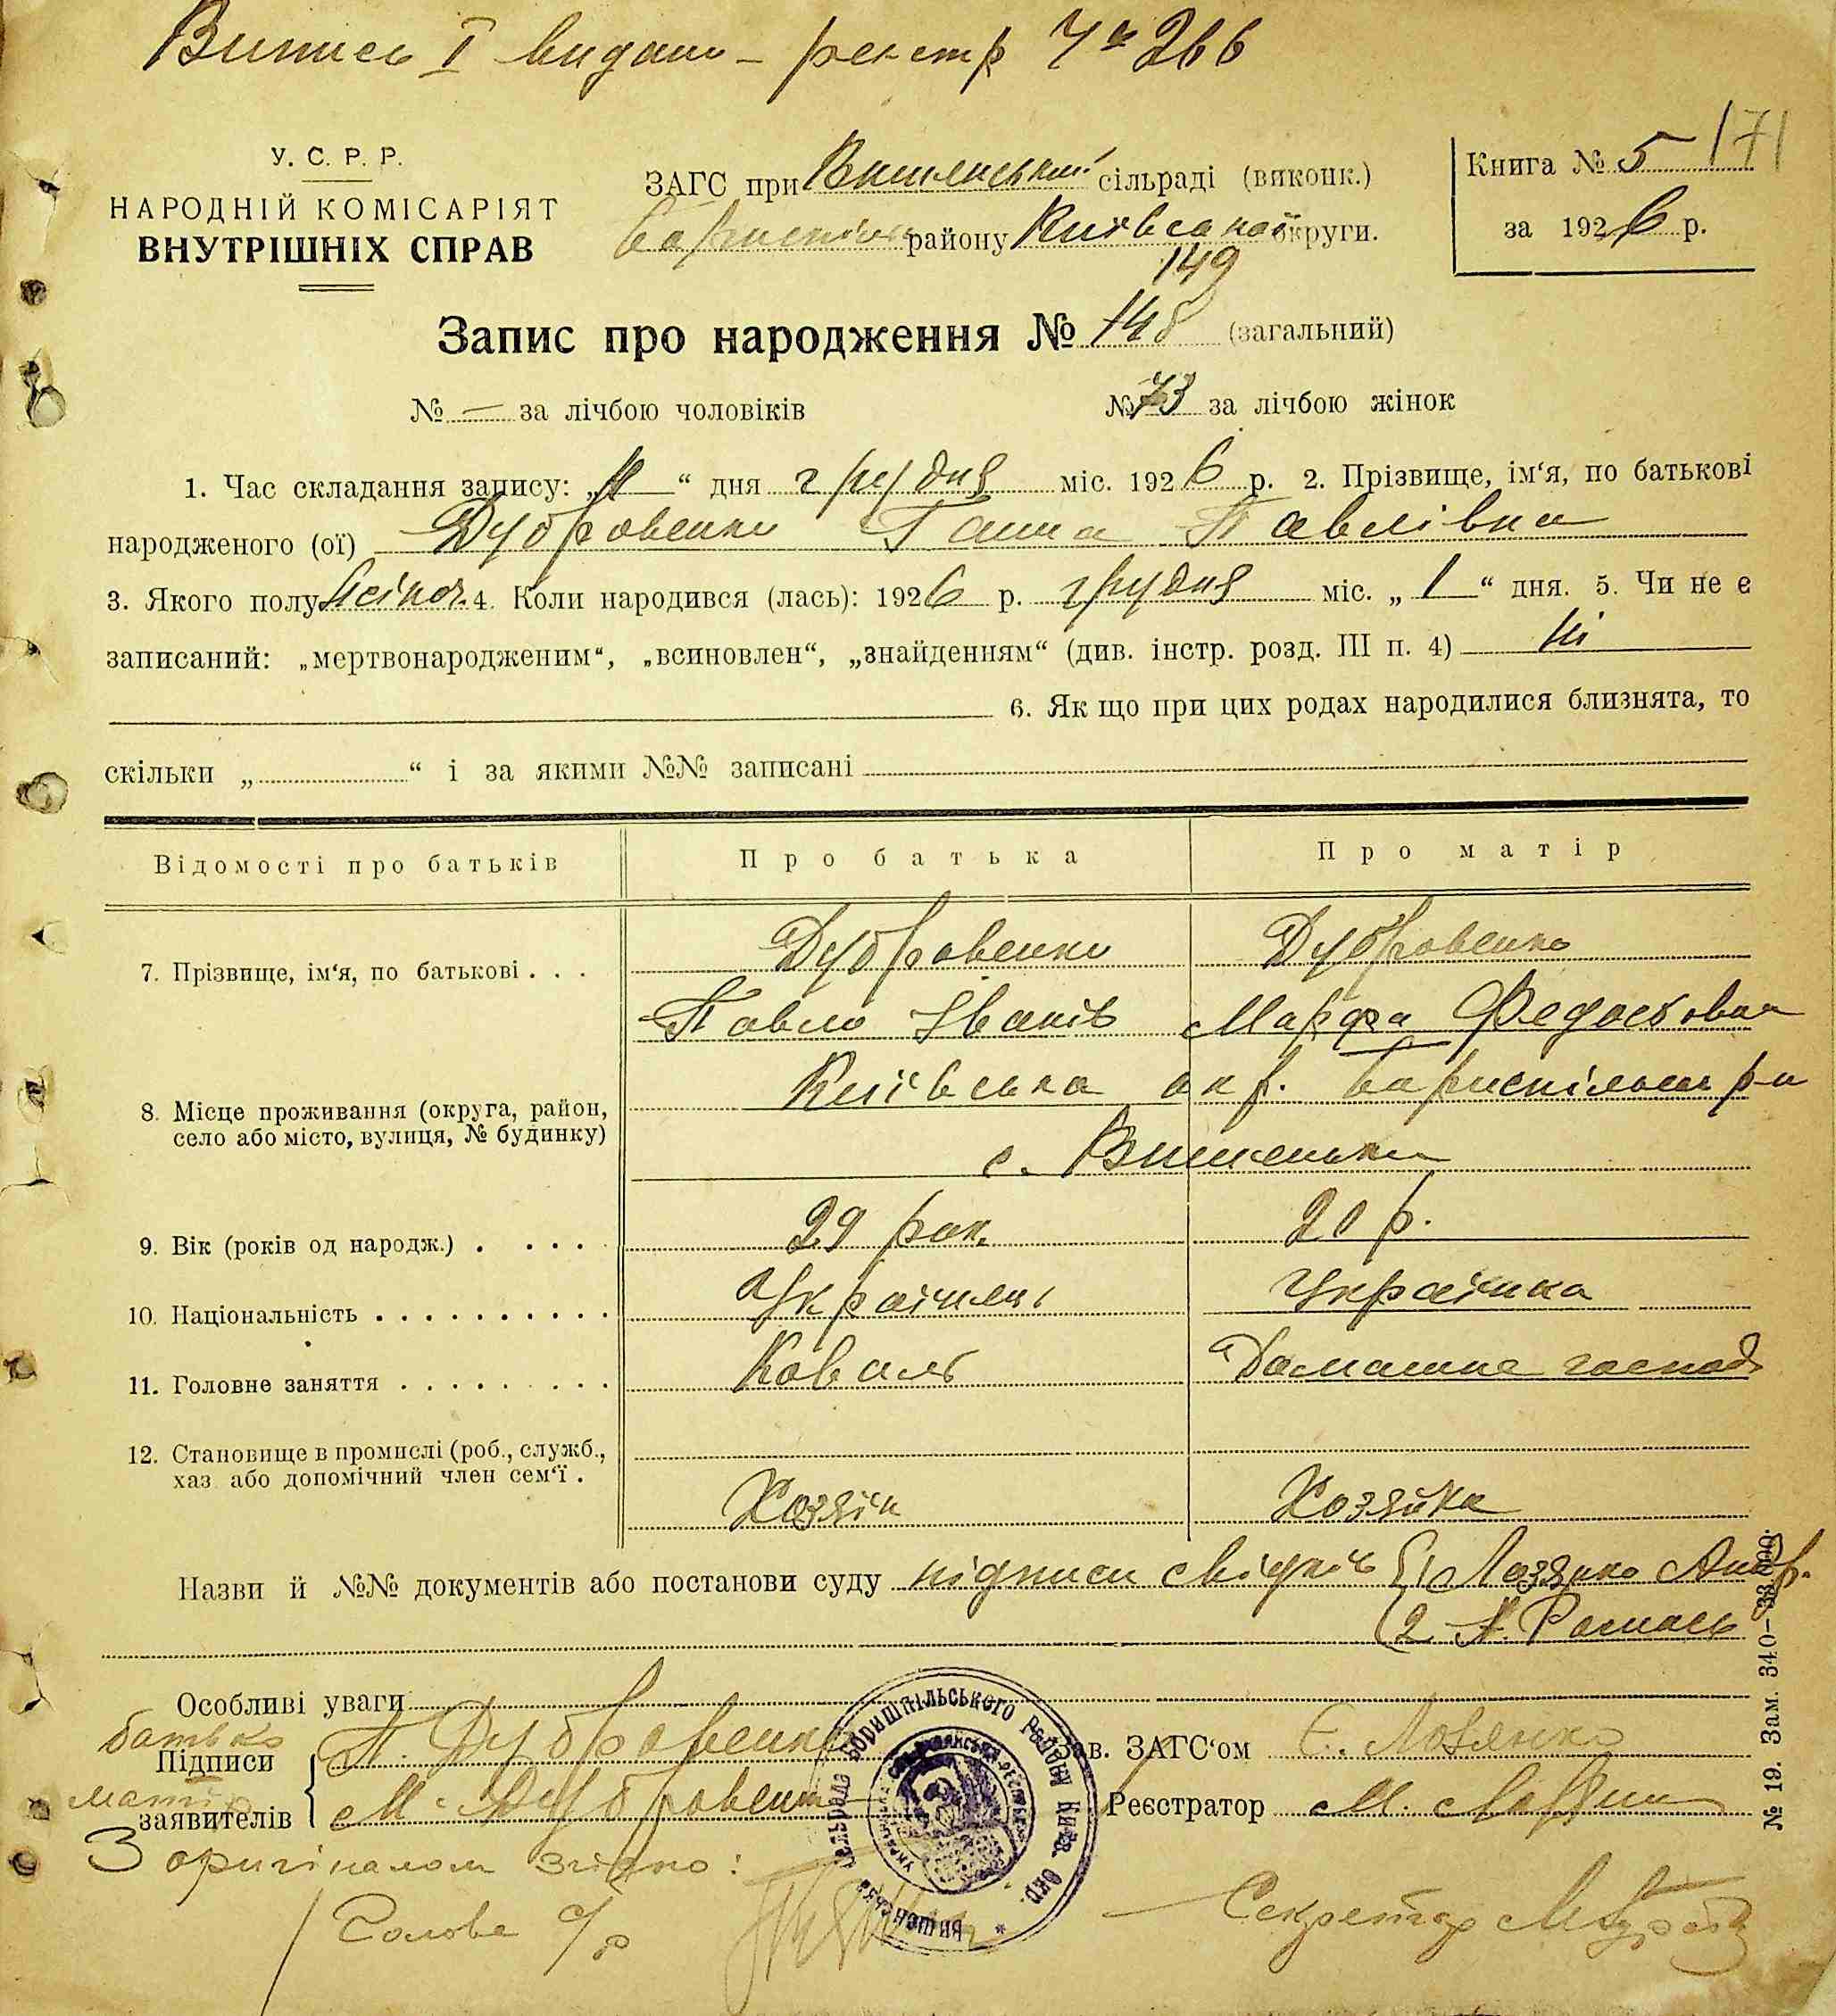 Випись І видано – реєстр Ч 266
У. С. Р. Р.
НАРОДНІЙ КОМІСАРІЯТ
ВНУТРІШНІХ СПРАВ
ЗАГС при Вишенській сільраді (виконк.)
району Київської округи.
Книга № 5 171
за 1926 р.
149
Запис про народження № 148 (загальний)
№ — за лічбою чоловіків
№ 73 за лічбою жінок
1. Час складання запису: „ “ дня грудня міс. 1926 р. 2. Прізвище, ім‘я, по батькові
народженого (ої) Дубровенко Ганна Павлівна
3. Якого полу жіноч. 4. Коли народився (лась): 1926 р. грудня міс. „ 1 “ дня. 5. Чи не є
записаний: „мертвонародженим“, „всиновлен“, „знайденням“ (див. інстр. розд. III п. 4) ні
6. Як що при цих родах народилися близнята, то
скільки „ “ і за якими №№ записані
Відомості про батьків
Про батька
Про матір
7. Прізвище, ім‘я, по батькові . . .
Дубровенко
Дубровенко
Павло Іванів
Марфа Федосовна
8. Місце проживання (округа, район,
село або місто, вулиця, № будинку)
Київська окр. р-н
с. Вишеньки
9. Вік (років од народж.) . . . .
29 рок.
20 р.
10. Національність . . . . . . . . . .
Українець
Українка
11. Головне заняття . . . . . . . . .
Коваль
Домашне господ
12. Становище в промислі (роб., служб.,
хаз або допомічний член сем‘ї .
Хозяїн
Хозяйка
Назви й №№ документів або постанови суду підписи свідків 1 Лозянко
2
Особливі уваги
батько
Підписи
матір
заявителів
П. Дубровенко
М. Дубровенко
Зав. ЗАГС‘ом Є. Лозянко
Реєстратор М.
З оригіналом згідно:
Голова с/р
Секретар
№ 19. Зам. 340–33.000.